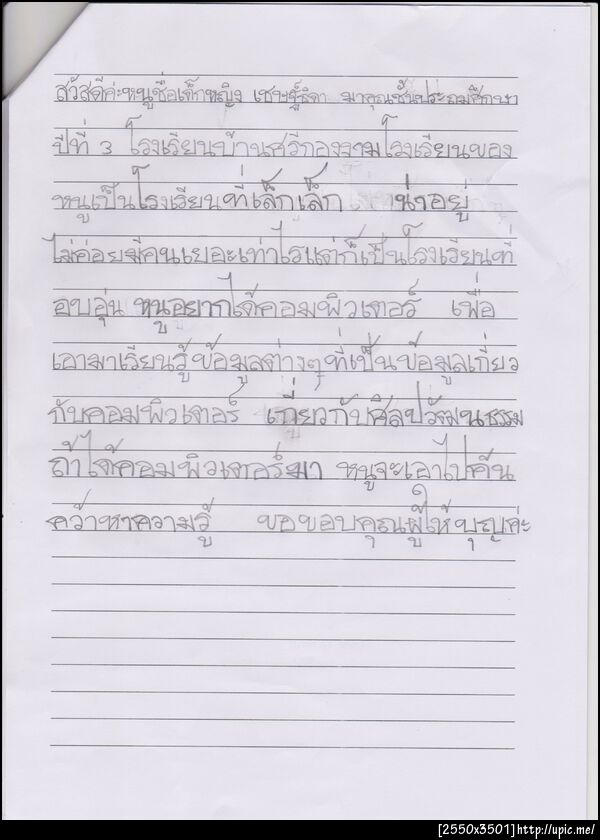 สวัสดีค่ะหนูชื่อเด็กหญิง มาคุณชั้นประถมศึกษา
ปีที่ 3 โรงเรียนบ้านศรีกองงามโรงเรียนของ
หนูเป็นโรงเรียนที่เล็กเล็ก น่าอยู่
ไม่ค่อยมีคนเยอะเท่าไรแต่ก็เป็นโรงเรียนที่
อบอุ่น หนูอยากได้คอมพิวเตอร์ เพื่อ
เอามาเรียนรู้ข้อมูลต่างๆที่เป็นข้อมูลเกี่ยว
กับคอมพิวเตอร์ เกี่ยวกับศิลปวัฒนธรรม
ถ้าได้คอมพิวเตอร์มา หนูจะเอาไปค้น
คว้าหาความรู้ ขอขอบคุณผู้ให้บุญค่ะ
[2550x3501]http://upic.me/